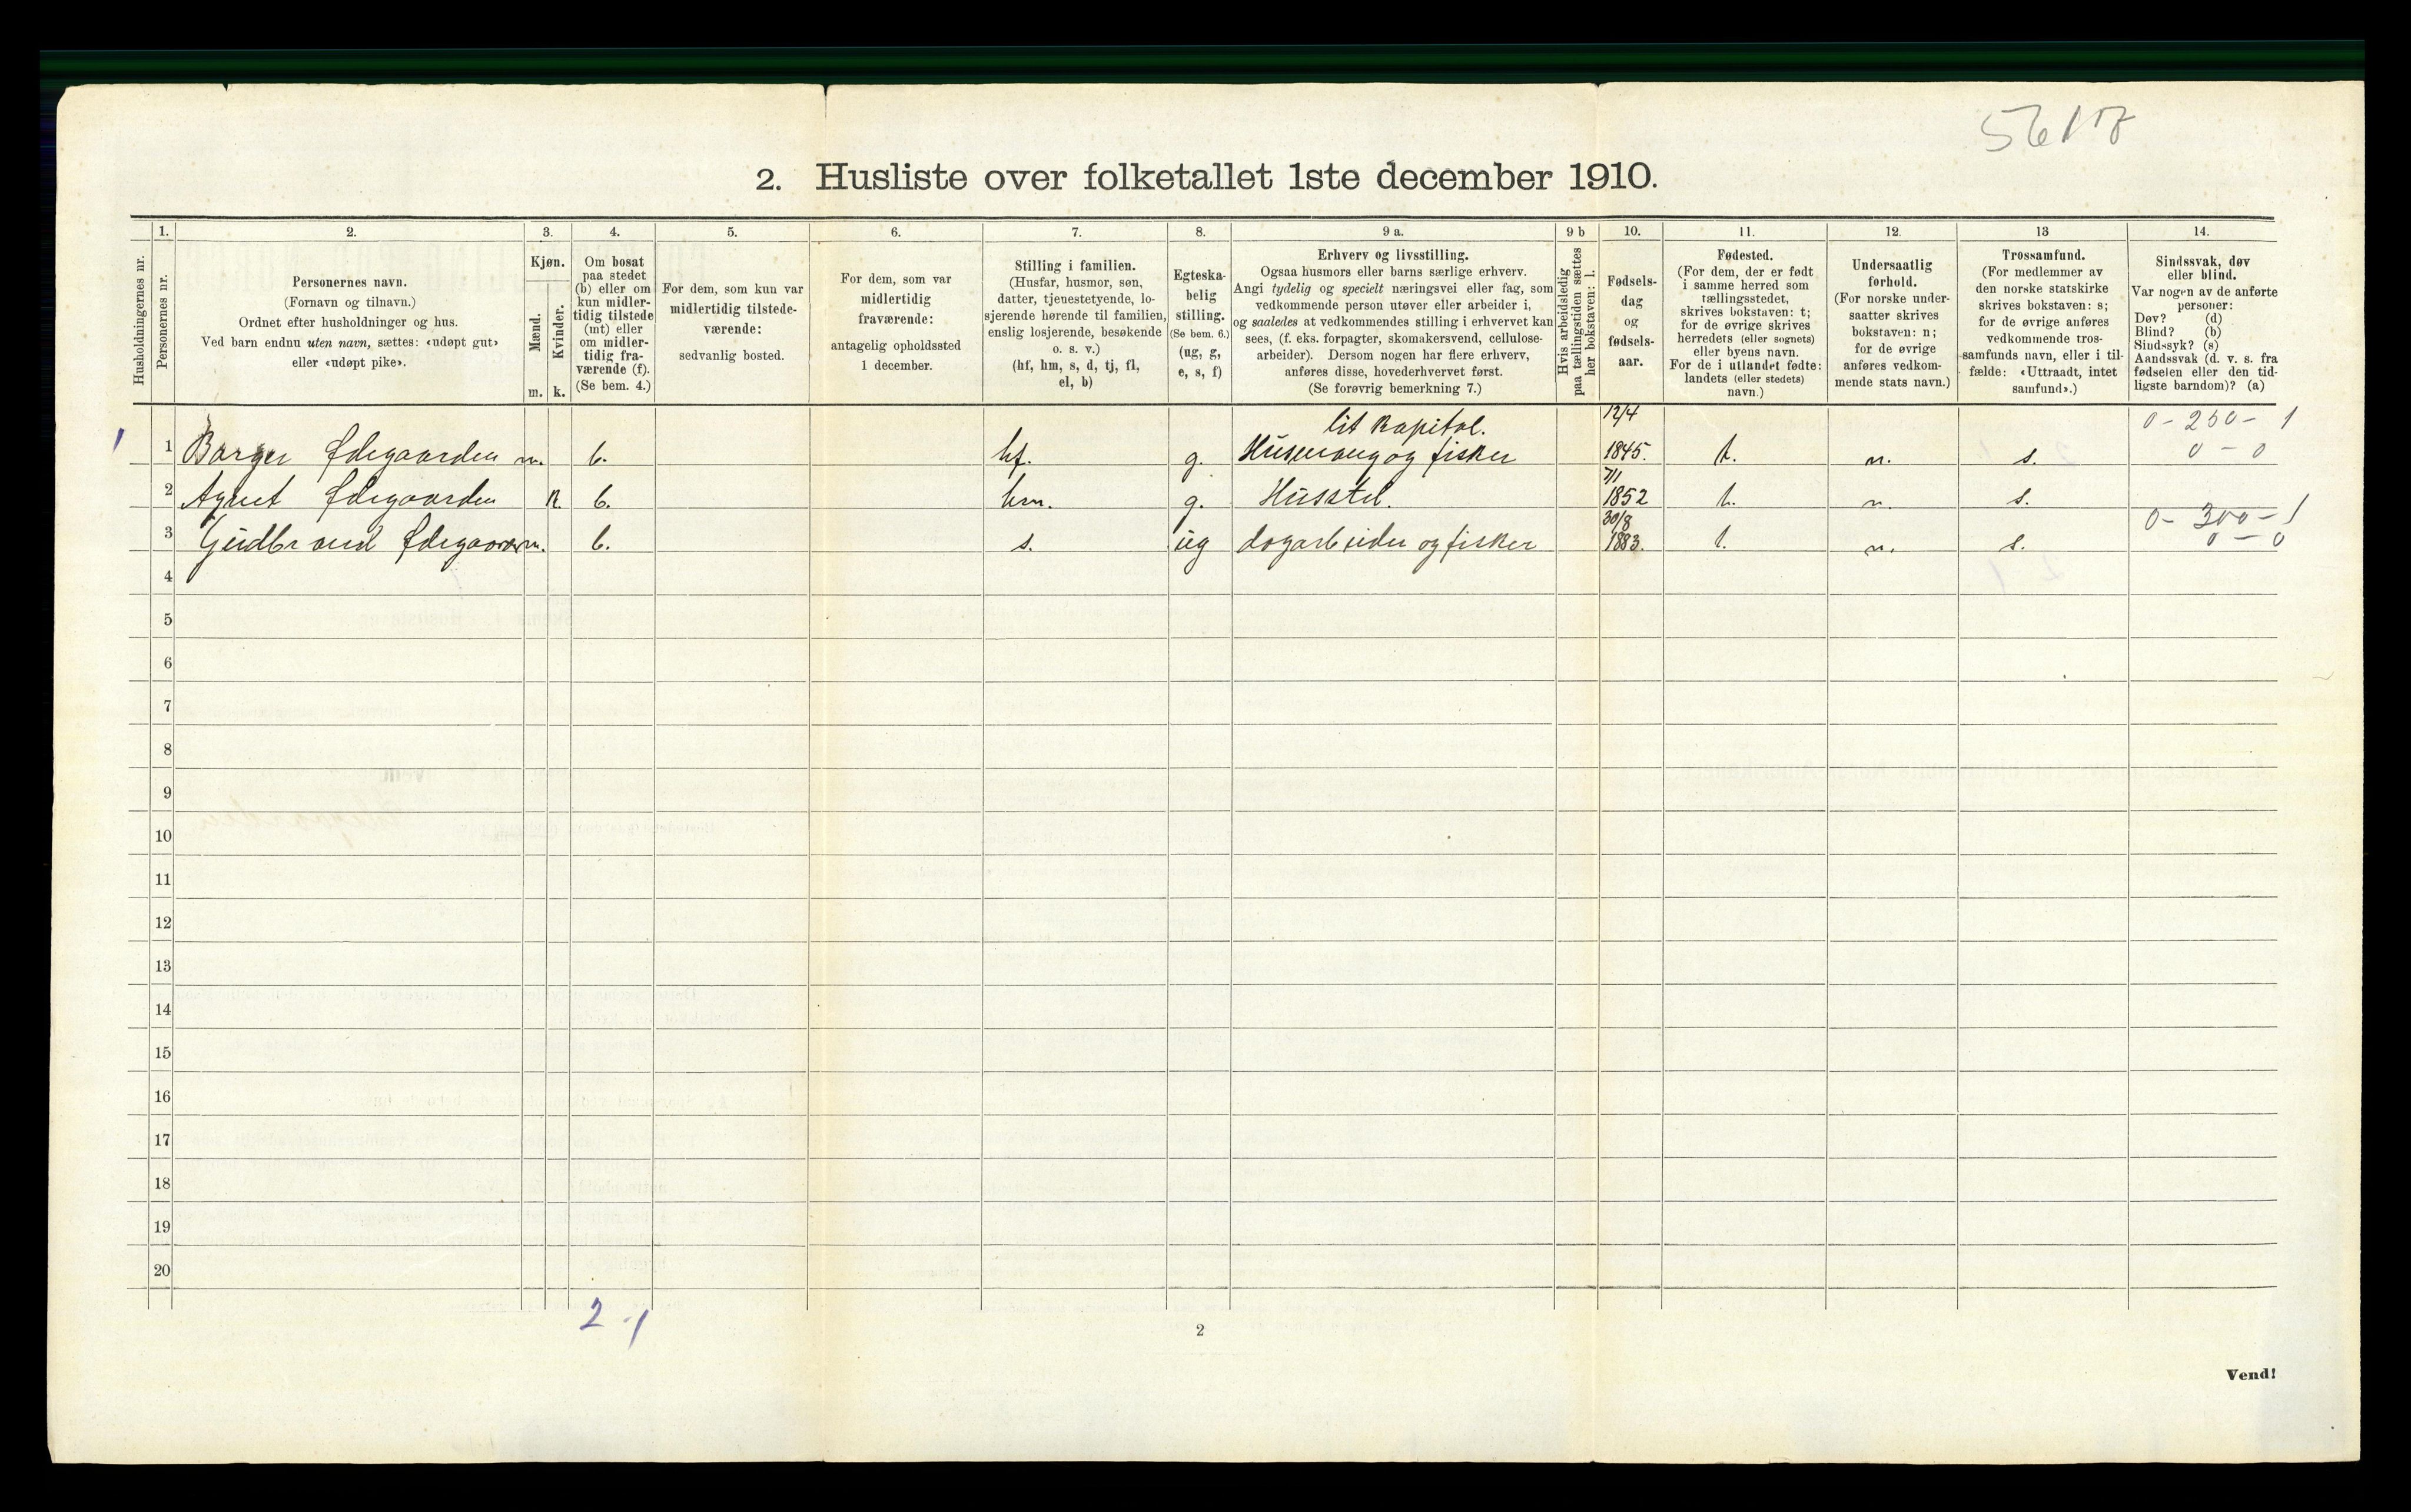 5617
2. Husliste over folketallet 1ste december 1910.
Husholdningernes nr.
1.
Personernes nr.
2.
Personernes navn.
(Fornavn og tilnavn.)
Ordnet efter husholdninger og hus.
Ved barn endnu uten navn, sættes: «udøpt gut»
eller «udøpt pike».
3.
Kjøn.
Mænd.
Kvinder.
m. k.
4.
Om bosat
paa stedet
(b) eller om
kun midler-
tidig tilstede
(mt) eller
om midler-
tidig fra-
værende (f).
(Se bem. 4.)
5.
For dem, som kun var
midlertidig tilstede-
værende:
sedvanlig bosted.
6.
For dem, som var
midlertidig
fraværende:
antagelig opholdssted
1 december.
7.
Stilling i familien.
(Husfar, husmor, søn,
datter, tjenestetyende, lo-
sjerende hørende til familien,
enslig losjerende, besøkende
o. s. v.)
(hf, hm, s, d, tj, fl,
el, b)
8.
Egteska-
belig
stilling.
(Se bem. 6.)
(ug, g,
e, s, f)
9 a.
Erhverv og livsstilling.
Ogsaa husmors eller barns særlige erhverv.
Angi tydelig og specielt næringsvei eller fag, som
vedkommende person utøver eller arbeider i,
og saaledes at vedkommendes stilling i erhvervet kan
sees, (f. eks. forpagter, skomakersvend, cellulose-
arbeider). Dersom nogen har flere erhverv,
anføres disse, hovederhvervet først.
(Se forøvrig bemerkning 7.)
9 b
Hvis arbeidsledig
paa tællingstiden sættes
her bokstaven: l.
10.
Fødsels-
dag
og
fødsels-
aar.
11.
Fødested.
(For dem, der er født
i samme herred som
tællingsstedet,
skrives bokstaven: t;
for de øvrige skrives
herredets (eller sognets)
eller byens navn.
For de i utlandet fødte:
landets (eller stedets)
navn.)
12.
Undersaatlig
forhold.
(For norske under-
saatter skrives
bokstaven: n;
for de øvrige
anføres vedkom-
mende stats navn.)
13
Trossamfund.
(For medlemmer av
den norske statskirke
skrives bokstaven: s;
for de øvrige anføres
vedkommende tros-
samfunds navn, eller i til-
fælde: «Uttraadt, intet
samfund».)
14.
Sindssvak, døv
eller blind.
Var nogen av de anførte
personer:
Døv? (d)
Blind? (b)
Sindssyk? (s)
Aandssvak (d. v. s. fra
fødselen eller den tid-
ligste barndom)? (a)
lit Kapital. 12/4 0-250-1
1 1 Børger Ødegaarden m. b. hf. g. Husmang og fisker 1845. t. n. s. 0-0
7/1
2 Agnet Ødegaarden k. b. hm. g. Husstel. 1852 t. n. s.
30/8 0-300-1
3 Gudbrand Ødegaarden m. b. s. ug dagarbeider og fisker 1883. t. n. s. 0-0
4
5
6
7
8
9
10
11
12
13
14
15
16
17
18
19
20
2-1
2
Vend!